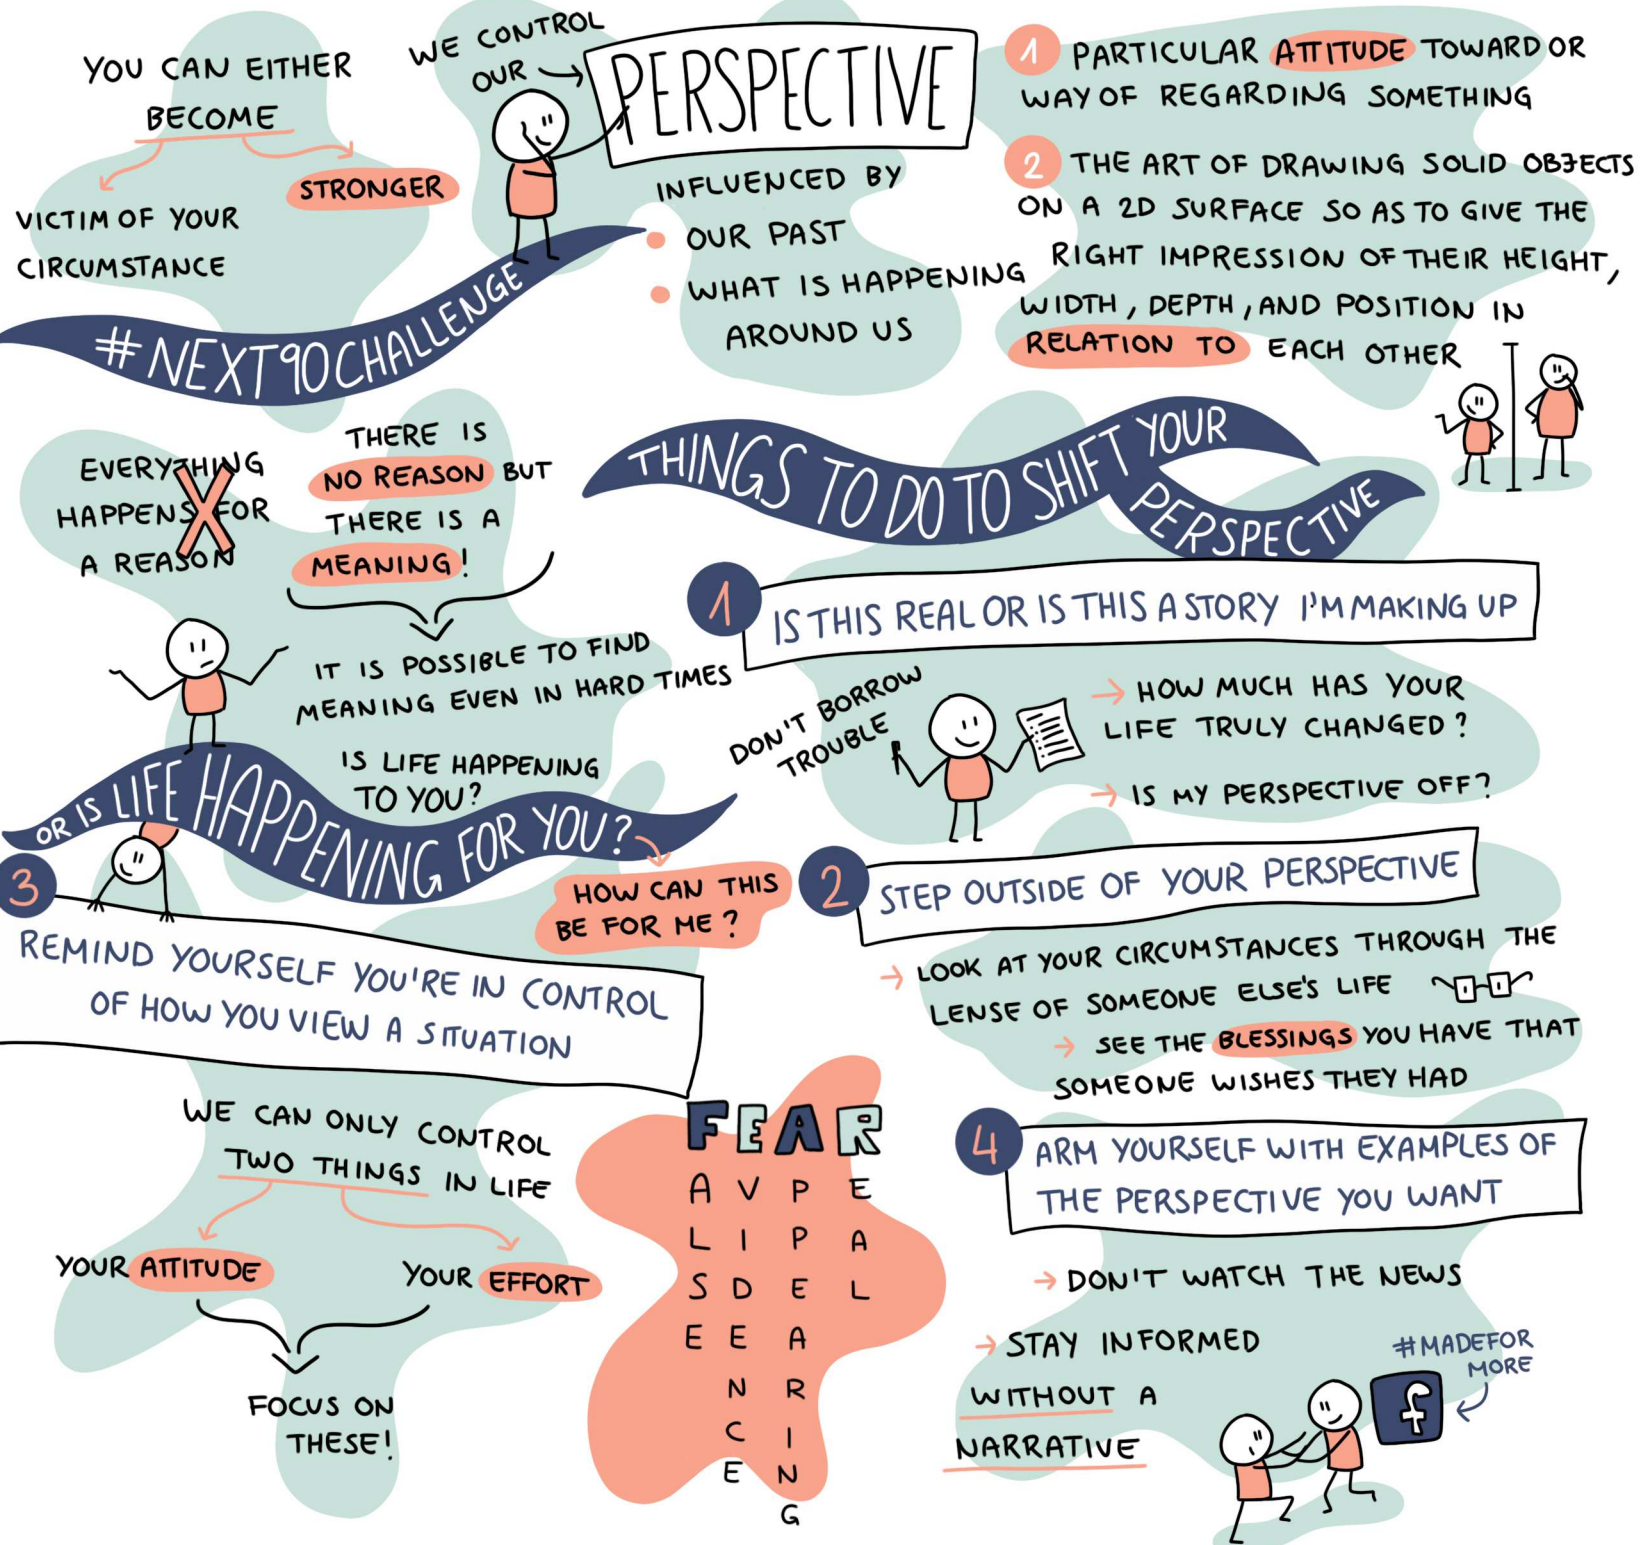 YOU CAN EITHER
BECOME
VICTIM OF YOUR
CIRCUMSTANCE
STRONGER
WE CONTROL
OUR
PERSPECTIVE
INFLUENCED BY
OUR PAST
WHAT IS HAPPENING
AROUND US
1 PARTICULAR ATTITUDE TOWARD OR
WAY OF REGARDING SOMETHING
2 THE ART OF DRAWING SOLID OBJECTS
ON A 2D SURFACE SO AS TO GIVE THE
RIGHT IMPRESSION OF THEIR HEIGHT,
WIDTH, DEPTH, AND POSITION IN
RELATION TO EACH OTHER
#NEXT90CHALLENGE
EVERYTHING
HAPPENS FOR
A REASON
THERE IS
NO REASON BUT
THERE IS A
MEANING!
IT IS POSSIBLE TO FIND
MEANING EVEN IN HARD TIMES
IS LIFE HAPPENING
TO YOU?
OR IS LIFE HAPPENING FOR YOU?
HOW CAN THIS
BE FOR ME?
THINGS TO DO TO SHIFT YOUR
PERSPECTIVE
1
IS THIS REAL OR IS THIS A STORY I'M MAKING UP
DON'T BORROW
TROUBLE
→ HOW MUCH HAS YOUR
LIFE TRULY CHANGED?
→ IS MY PERSPECTIVE OFF?
2
STEP OUTSIDE OF YOUR PERSPECTIVE
→ LOOK AT YOUR CIRCUMSTANCES THROUGH THE
LENSE OF SOMEONE ELSE'S LIFE
→ SEE THE BLESSINGS YOU HAVE THAT
SOMEONE WISHES THEY HAD
3
REMIND YOURSELF YOU'RE IN CONTROL
OF HOW YOU VIEW A SITUATION
WE CAN ONLY CONTROL
TWO THINGS IN LIFE
YOUR ATTITUDE
YOUR EFFORT
FOCUS ON
THESE!
FEAR
A V P E
L I P A
S D E L
E E A
N R
C I
E N
G
4
ARM YOURSELF WITH EXAMPLES OF
THE PERSPECTIVE YOU WANT
→ DON'T WATCH THE NEWS
→ STAY INFORMED
WITHOUT A
NARRATIVE
#MADEFOR
MORE
f